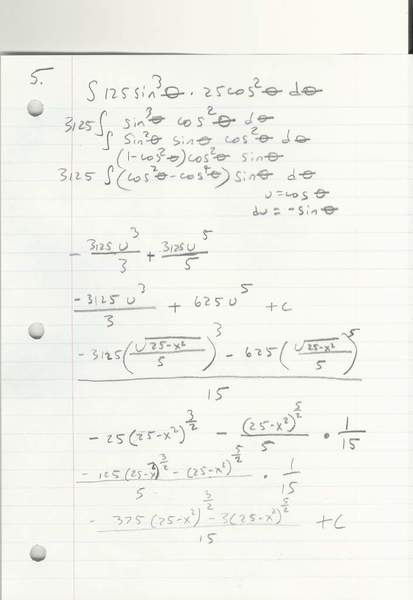 5.
∫ 125 sin³θ · 25cos²θ dθ
3125 ∫ sin³θ cos²θ dθ
∫ sin²θ sinθ cos²θ dθ
(1-cos²θ)cos²θ sinθ
3125 ∫ (cos²θ - cos⁴θ) sinθ dθ
u = cos θ
du = -sin θ
- 3125u³/3 + 3125u⁵/5
-3125u³/3 + 625u⁵ + c
(-3125(√(25-x²)/5)³ - 625(√(25-x²)/5)⁵)/15
-25(25-x²)^(3/2) - (25-x²)^(5/2)/5 · 1/15
(-125(25-x²)^(3/2) - (25-x²)^(5/2))/5 · 1/15
(-375(25-x²)^(3/2) - 3(25-x²)^(5/2))/15 + c